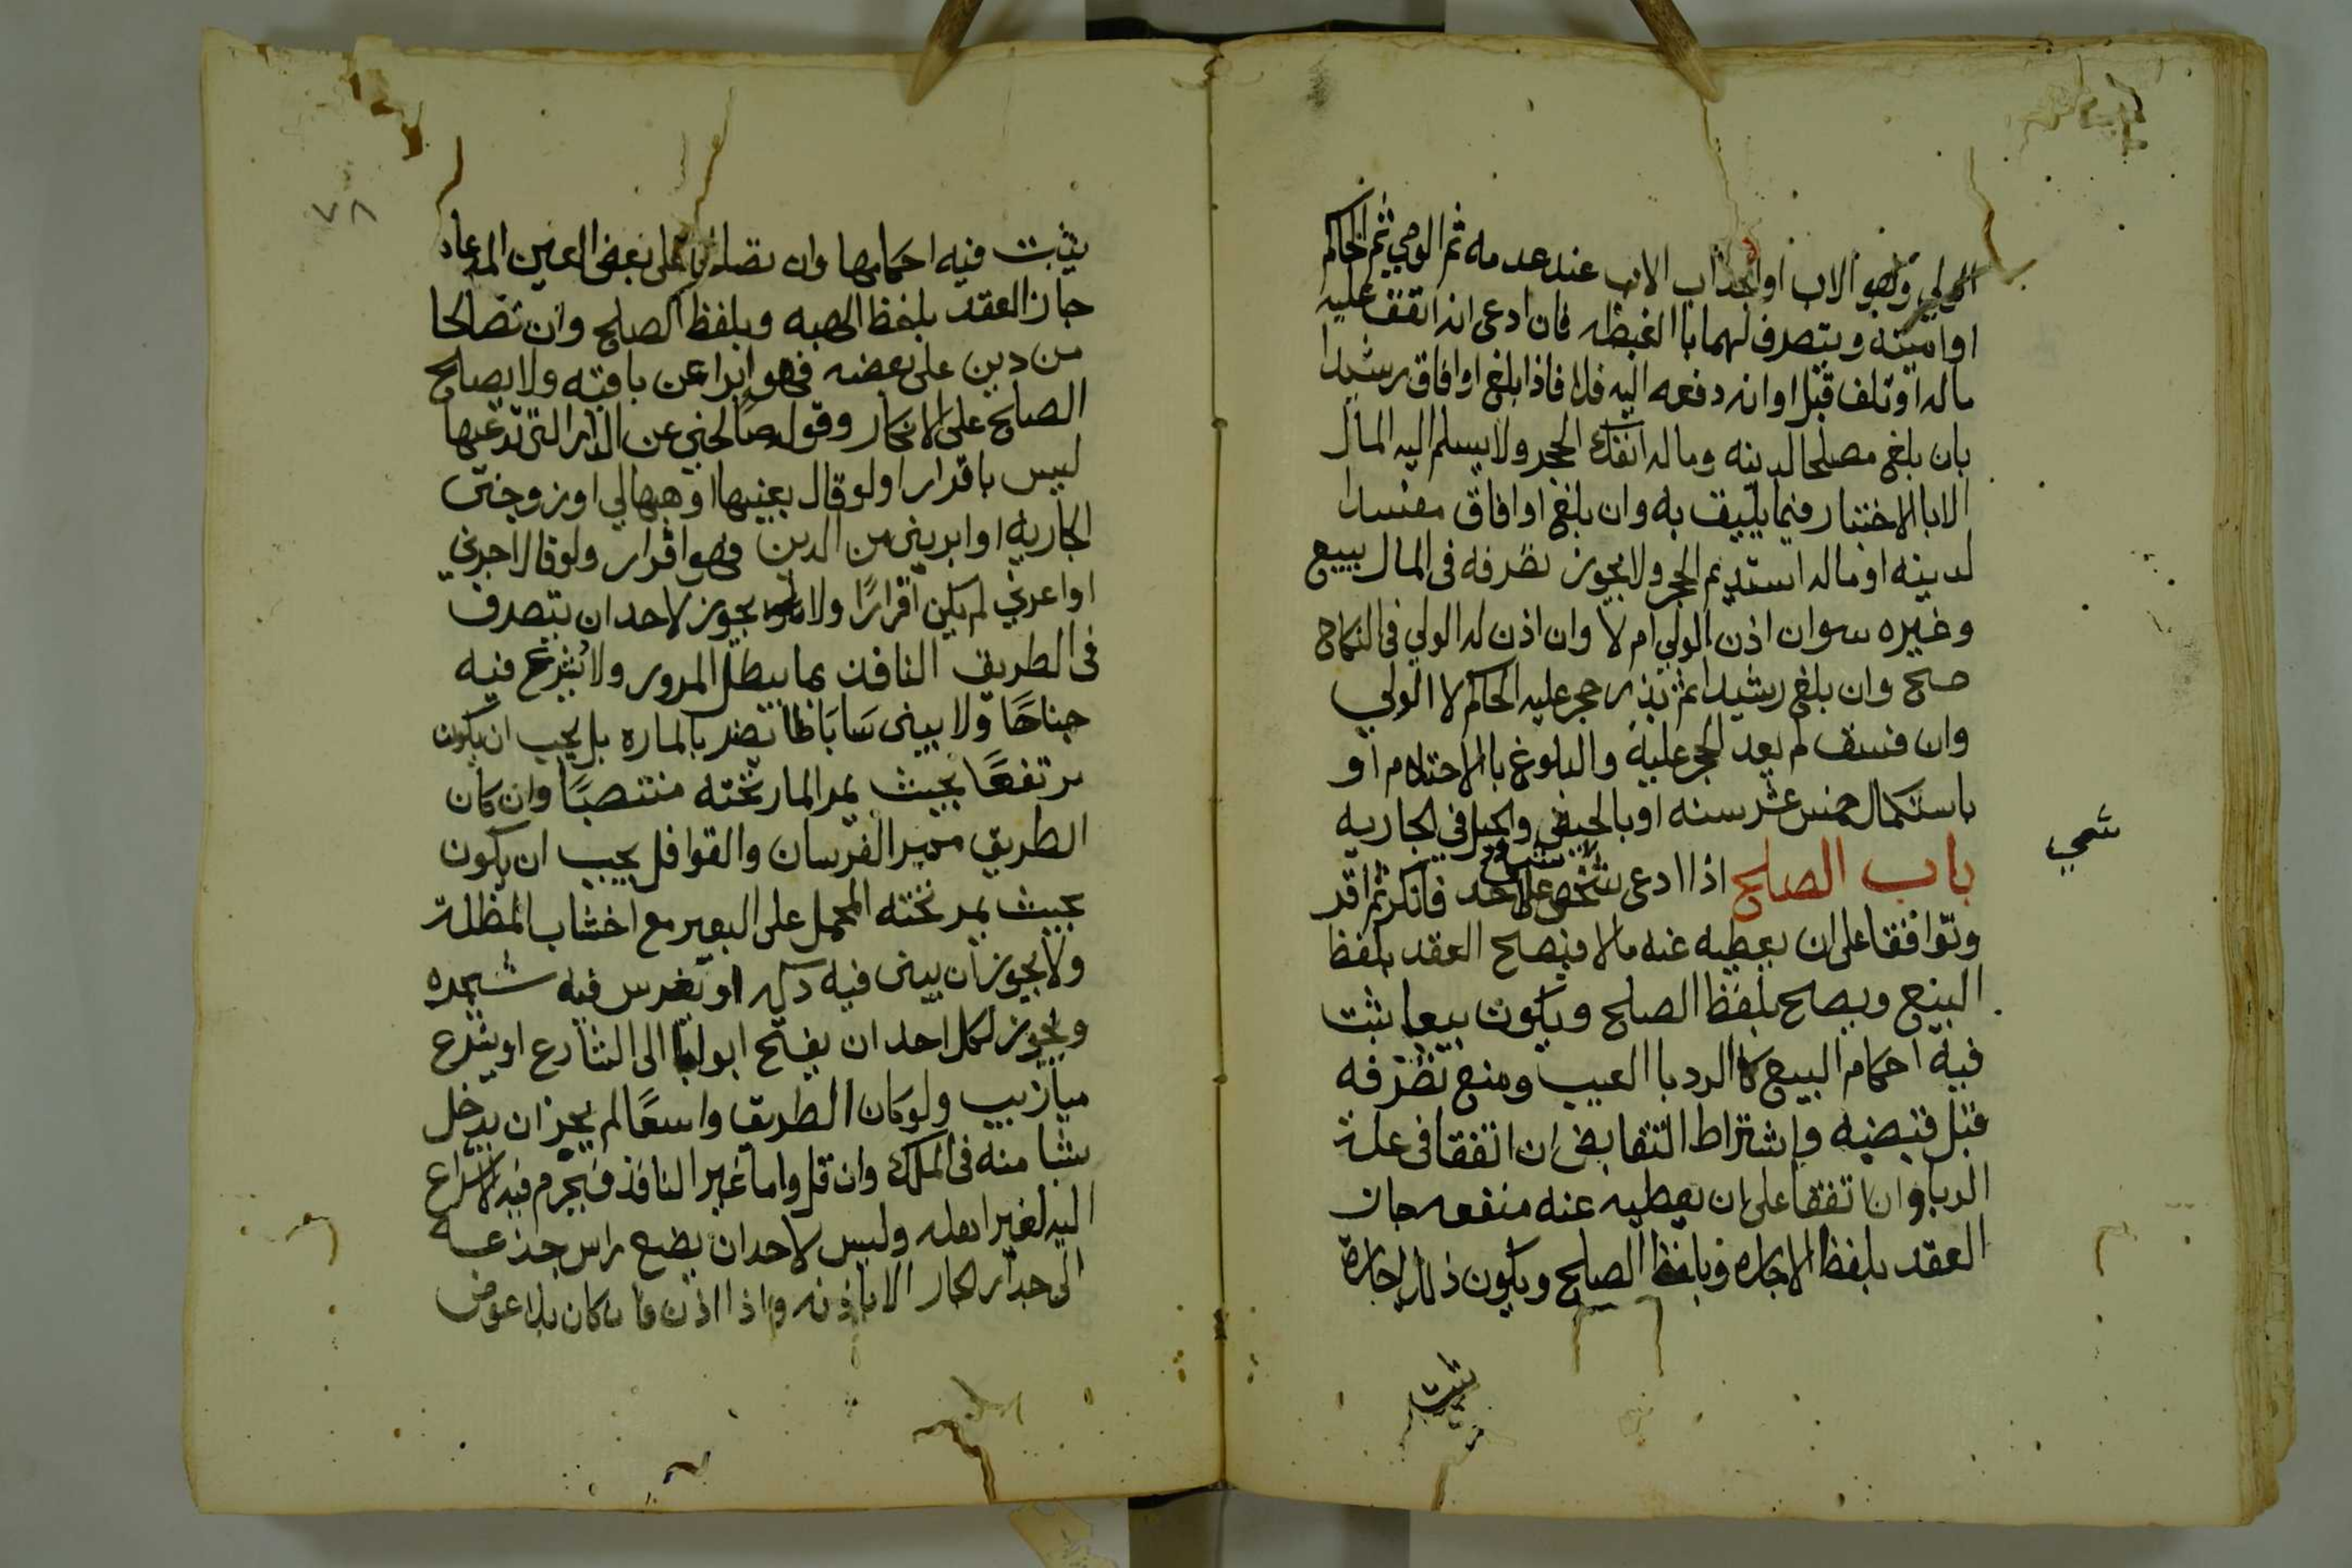 الولي وهو الاب او الجد اب الاب عند عدمه ثم الوصي ثم الحاكم
او امينه ويتصرف لهما باالغبطه فان ادعى انه انفق عليه
ماله او تلف قبل او انه دفعه اليه فلا فاذا بلغ او افاق رشيدا
بان بلغ مصلحا لدينه وماله انفك الحجر ولا يسلم اليه المال
الا باالاختبار فيما يليق به وان بلغ او افاق مفسدا
لدينه او ماله استديم الحجر ولا يجوز تصرفه فى المال ببيع
وغيره سوا ن اذن الولي ام لا وان اذن له الولي فى النكاح
صح وان بلغ رشيدا ثم بذر حجر عليه الحاكم لا الولي
وان فسق لم يعد الحجر عليه والبلوغ باالاحتلام او
باستكمال خمس عشر سنه او بالحيض والحبل في الجاريه
باب الصلح اذا ادعى شخص على احد فانكر ثم اقر
شي
وتوافقا على ان يعطيه عنه مالا فيصح العقد بلفظ
البيع ويصح بلفظ الصلح ويكون بيعا يثبت
فيه احكام البيع كاالرد باالعيب ومنع تصرفه
قبل قبضه واشتراط التقابض ان اتفقا فى علة
الربا وان اتفقا على ان يعطيه عنه منفعه جاز
العقد بلفظ الاجاره وبلفظ الصلح ويكون ذلك اجارة
يثبت
٧٨
يثبت فيه احكامها وان تصلحا على بعض العين المدعاه
جاز العقد بلفظ الهبه وبلفظ الصلح وان تصالحا
من دين على بعضه فهو ابرا عن باقيه ولا يصلح
الصلح على الانكار وقوله صالحني عن الدار التى تدعيها
ليس باقرار ولو قال بعنيها او هبها لي او زوجنى
الجاريه او ابريني من الدين فهو اقرار ولو قال اجرني
او اعرني لم يكن اقرارًا ولا يجوز لاحد ان يتصرف
فى الطريق النافذ بما يبطل المرور ولا يشرع فيه
جناحًا ولا يبنى سَابَاطا تضر بالماره بل يجب ان يكون
مرتفعًا بحيث يمر المار تحته منتصبًا وان كان
الطريق ممر الفرسان والقوافل يجب ان يكون
بحيث يمر تحته المحمل على البعير مع اخشاب المظلة
ولا يجوز ان يبنى فيه دكه او يغرس فيه شجره
ويجوز لكل احد ان يفتح ابوابا الى الشارع او يشرع
ميازيب ولو كان الطريق واسعًا لم يجز ان يدخل
شيا منه فى الملك وان قل واما غير النافذ فيحرم فيه الاشراع
اليه لغير اهله وليس لاحد ان يضع راس جذعه
الى جدار الجار الا باذنه واذا اذن فان كان بلا عوض